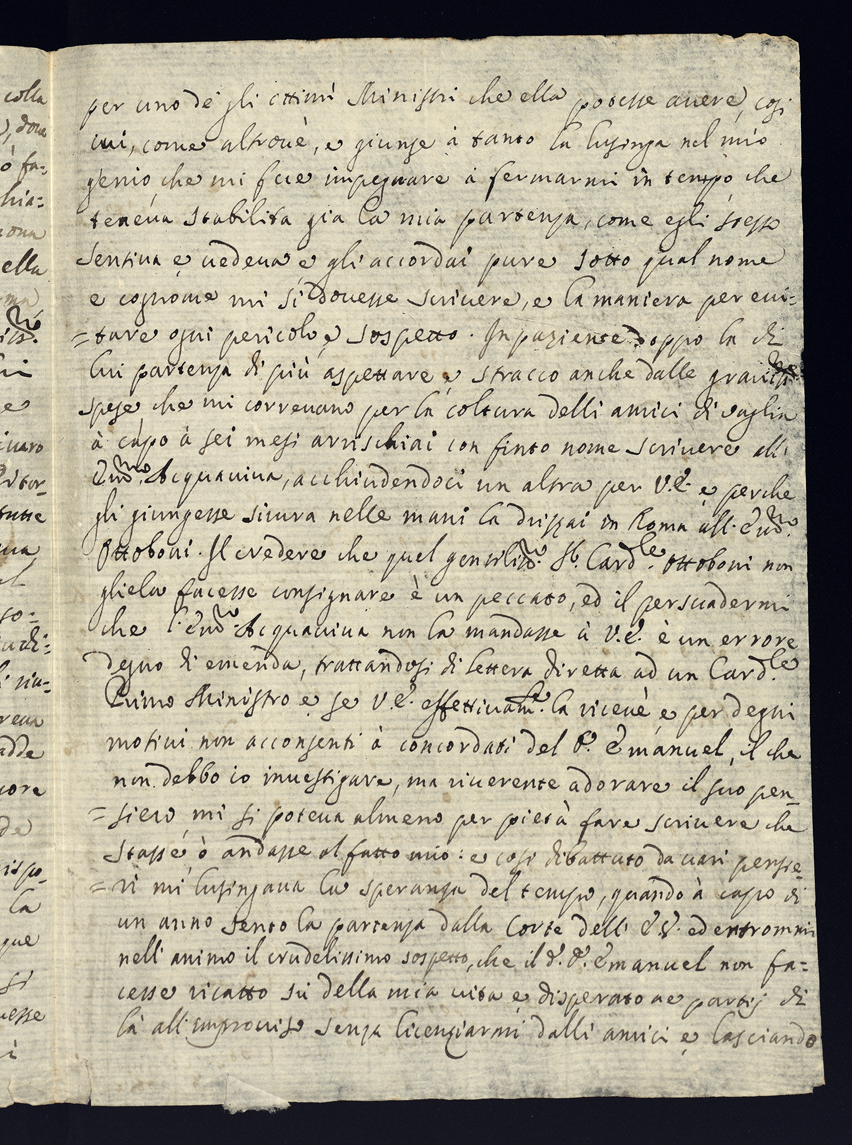 colla
per uno de gli ottimi Ministri che ella potesse avere, così
qui, come altrove, e giunse à tanto la lusinga nel mio
genio che mi fece impegnare à fermarmi in tempo che
teneva stabilita gia la mia partenza, come egli stesso
sentiva e vedeva e gli accordai pure sotto qual nome
e cognome mi si dovesse scrivere, e la maniera per evi=
=tare ogni pericolo e sospetto. Inpaziente doppo la di
lui partenza di più aspettare e stracco anche dalle
spese che mi correvano per la coltura delli amici di vaglia
à capo à sei mesi arrischiai con finto nome scrivere all'
Em̄o. Acquaviva, acchiudendoci un altra per V.E. e perche
gli giungesse sicura nelle mani la drizzai in Roma all. Em̄o.
Ottoboni. Il credere che quel gentiliss̄o. Sr. Cardle. Ottoboni non
gliela facesse consignare è un peccato, ed il persuadermi
che l'Em̄o Acquaviva non la mandasse à V.E. è un errore
degno di emenda, trattandosi di lettera diretta ad un Cardle.
Primo Ministro e se V.E. effettivamte. la ricevè e per degni
motivi non acconsenti à concordati del P. Emanuel, il che
non debbo io investigare, ma riverente adorare il suo pen=
=siero mi si poteva almeno per pietà fare scrivere che
stasse ò andasse al fatto mio: e cosi dibattuto da vari pensie=
=ri mi lusingava la speranza del tempo, quando à capo di
un anno sento la partenza dalla Corte dell' E.V. ed entrommi
nell'animo il crudelissimo sospetto, che il d. P. Emanuel non fa=
cesse ricatto sù della mia vita e disperato ne partij di
là all'improviso senza licenziarmi dalli amici e lasciando